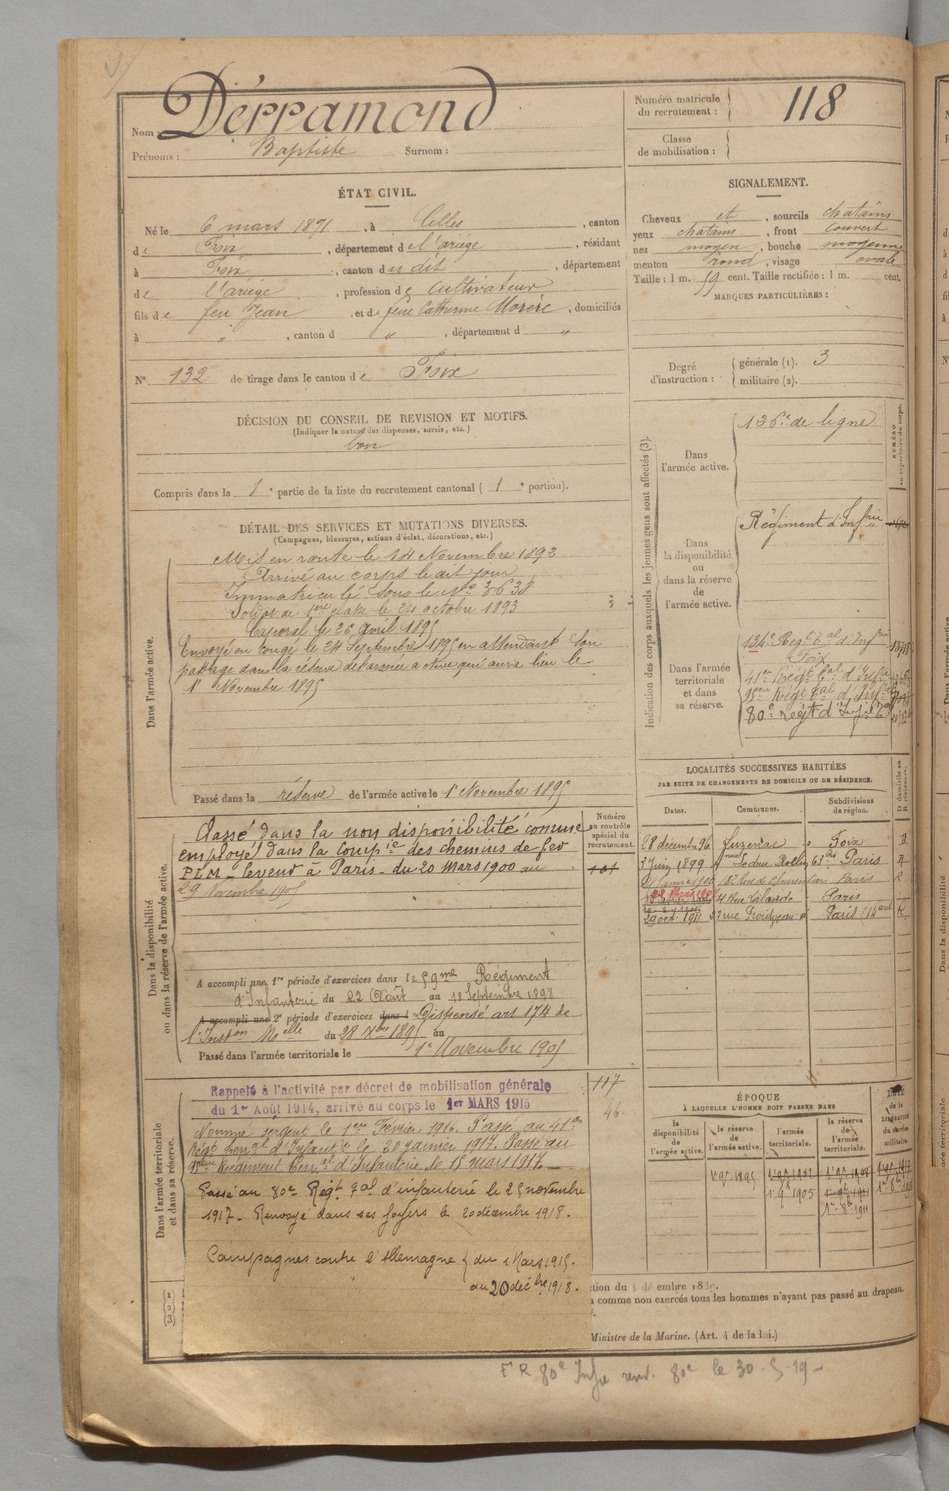 Nom : Dérramond
Prénoms : Baptiste Surnom :
Numéro matricule du recrutement : 118
Classe de mobilisation :
ÉTAT CIVIL.
Né le 6 mars 1871, à Celles, canton
de Foix, département de l'ariège, résidant
à Foix, canton du dit, département
de l'ariege, profession de Cultivateur
fils de feu Jean, et de feue Catherine Morère, domiciliés
à „, canton d „, département d „
N° 132 de tirage dans le canton de Foix
SIGNALEMENT.
Cheveux et, sourcils chatains
yeux chatains, front couvert
nez moyen, bouche moyenne
menton rond, visage ovale
Taille : 1 m. 59 cent. Taille rectifiée : 1 m. cent.
MARQUES PARTICULIÈRES :
Degré d'instruction : générale (1). 3
militaire (2).
DÉCISION DU CONSEIL DE REVISION ET MOTIFS.
(Indiquer la nature des dispenses, sursis, etc.)
bon
Compris dans la 1e partie de la liste du recrutement cantonal ( 1e portion).
DÉTAIL DES SERVICES ET MUTATIONS DIVERSES.
(Campagnes, blessures, actions d'éclat, décorations, etc.)
Dans l'armée active.
Mis en route le 14 Novembre 1892
Arrivé au corps le dit jour
Immatriculé sous le No 3638
Soldat de 1ere classe le 24 octobre 1893
Caporal le 26 Avril 1895
Envoyé en congé le 24 Septembre 1895 en attendant son
passage dans la réserve de l'armée active qui aura lieu le
1r Novembre 1895
Passé dans la réserve de l'armée active le 1r Novembre 1895
Indication des corps auxquels les jeunes gens sont affectés (3).
Dans l'armée active.
136e de ligne
Dans la disponibilité ou dans la réserve de l'armée active.
Régiment d'Infrie
Dans l'armée territoriale et dans sa réserve.
134e Regt tal d'Infrie
Foix
41me Régt tal d'Infrie
80e Régt d'Infie tale
Dans la disponibilité ou dans la réserve de l'armée active.
Numéro au contrôle spécial du recrutement.
Classé dans la non disponibilité comme
employé dans la Compie des chemins de fer
PLM – leveur à Paris – du 20 Mars 1900 au
29 Novembre 1905
A accompli une 1re période d'exercices dans le 59me Régiment
d'Infanterie du 22 Août au 18 Septembre 1898
A accompli une 2e période d'exercices dans l Dispensé art 174 de
l'Inston Melle du 28 Xbre 1895 au
Passé dans l'armée territoriale le 1r Novembre 1905
LOCALITÉS SUCCESSIVES HABITÉES
PAR SUITE DE CHANGEMENTS DE DOMICILE OU DE RÉSIDENCE.
Dates. Communes. Subdivisions de région.
28 décembre 96 Luzenac Foix D
3 Juin 1899 Ledru Rollin 63bis Paris R
Paris R
4 Rue Lalande Paris
29 oct. 1911 Paris R
Dans l'armée territoriale et dans sa réserve.
Rappelé à l'activité par décret de mobilisation générale
du 1er Août 1914, arrivé au corps le 1er MARS 1915
Nommé sergent le 1er Février 1916. Passé au 41me
Régt terral d'Infanterie le 20 Janvier 1917. Passé au
Régiment terral d'Infanterie le 15 mars 1917.
Passé au 80e Régt tal d'infanterie le 25 novembre
1917. Renvoyé dans ses foyers le 20 décembre 1918.
Campagnes contre l'Allemagne { du 1 Mars 1915.
au 20 décbre 1918.
117
46
ÉPOQUE
À LAQUELLE L'HOMME DOIT PASSER DANS
la disponibilité de l'armée active.
la réserve de l'armée active.
l'armée territoriale.
la réserve de l'armée territoriale.
comme non exercés tous les hommes n'ayant pas passé au drapeau.
Ministre de la Marine. (Art. 4 de la loi.)
F R 80e Infie renv. 80e le 30-5-19-